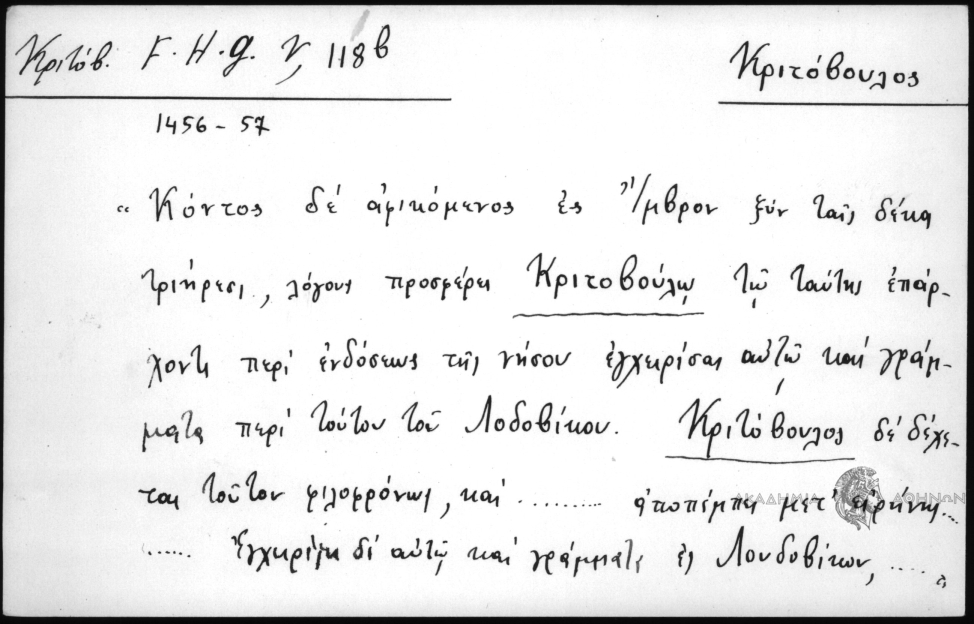 Κριτόβ. F.H.g. V, 118β
Κριτόβουλος
1456-57
“ Κόντος δέ ἀφικόμενος ἐς Ἴμβρον ξύν ταῖς δέκα
τριήρεσι, λόγους προσφέρει Κριτοβούλῳ τῷ ταύτης ἐπάρ-
χοντι περί ἐνδόσεως τῆς νήσου ἐγχειρίσας αὐτῷ καί γράμ-
ματα περί τούτου τοῦ Λοδοβίκου. Κριτόβουλος δέ δέχε-
ται τοῦτον φιλοφρόνως, καί ........ ἀποπέμπει μετ' εἰρήνης...
ΑΚΑΔΗΜΙΑ ΑΘΗΝΩΝ
...... Ἐγχειρίζει δέ αὐτῷ καί γράμματα ἐς Λουδοβίκον, ..... „